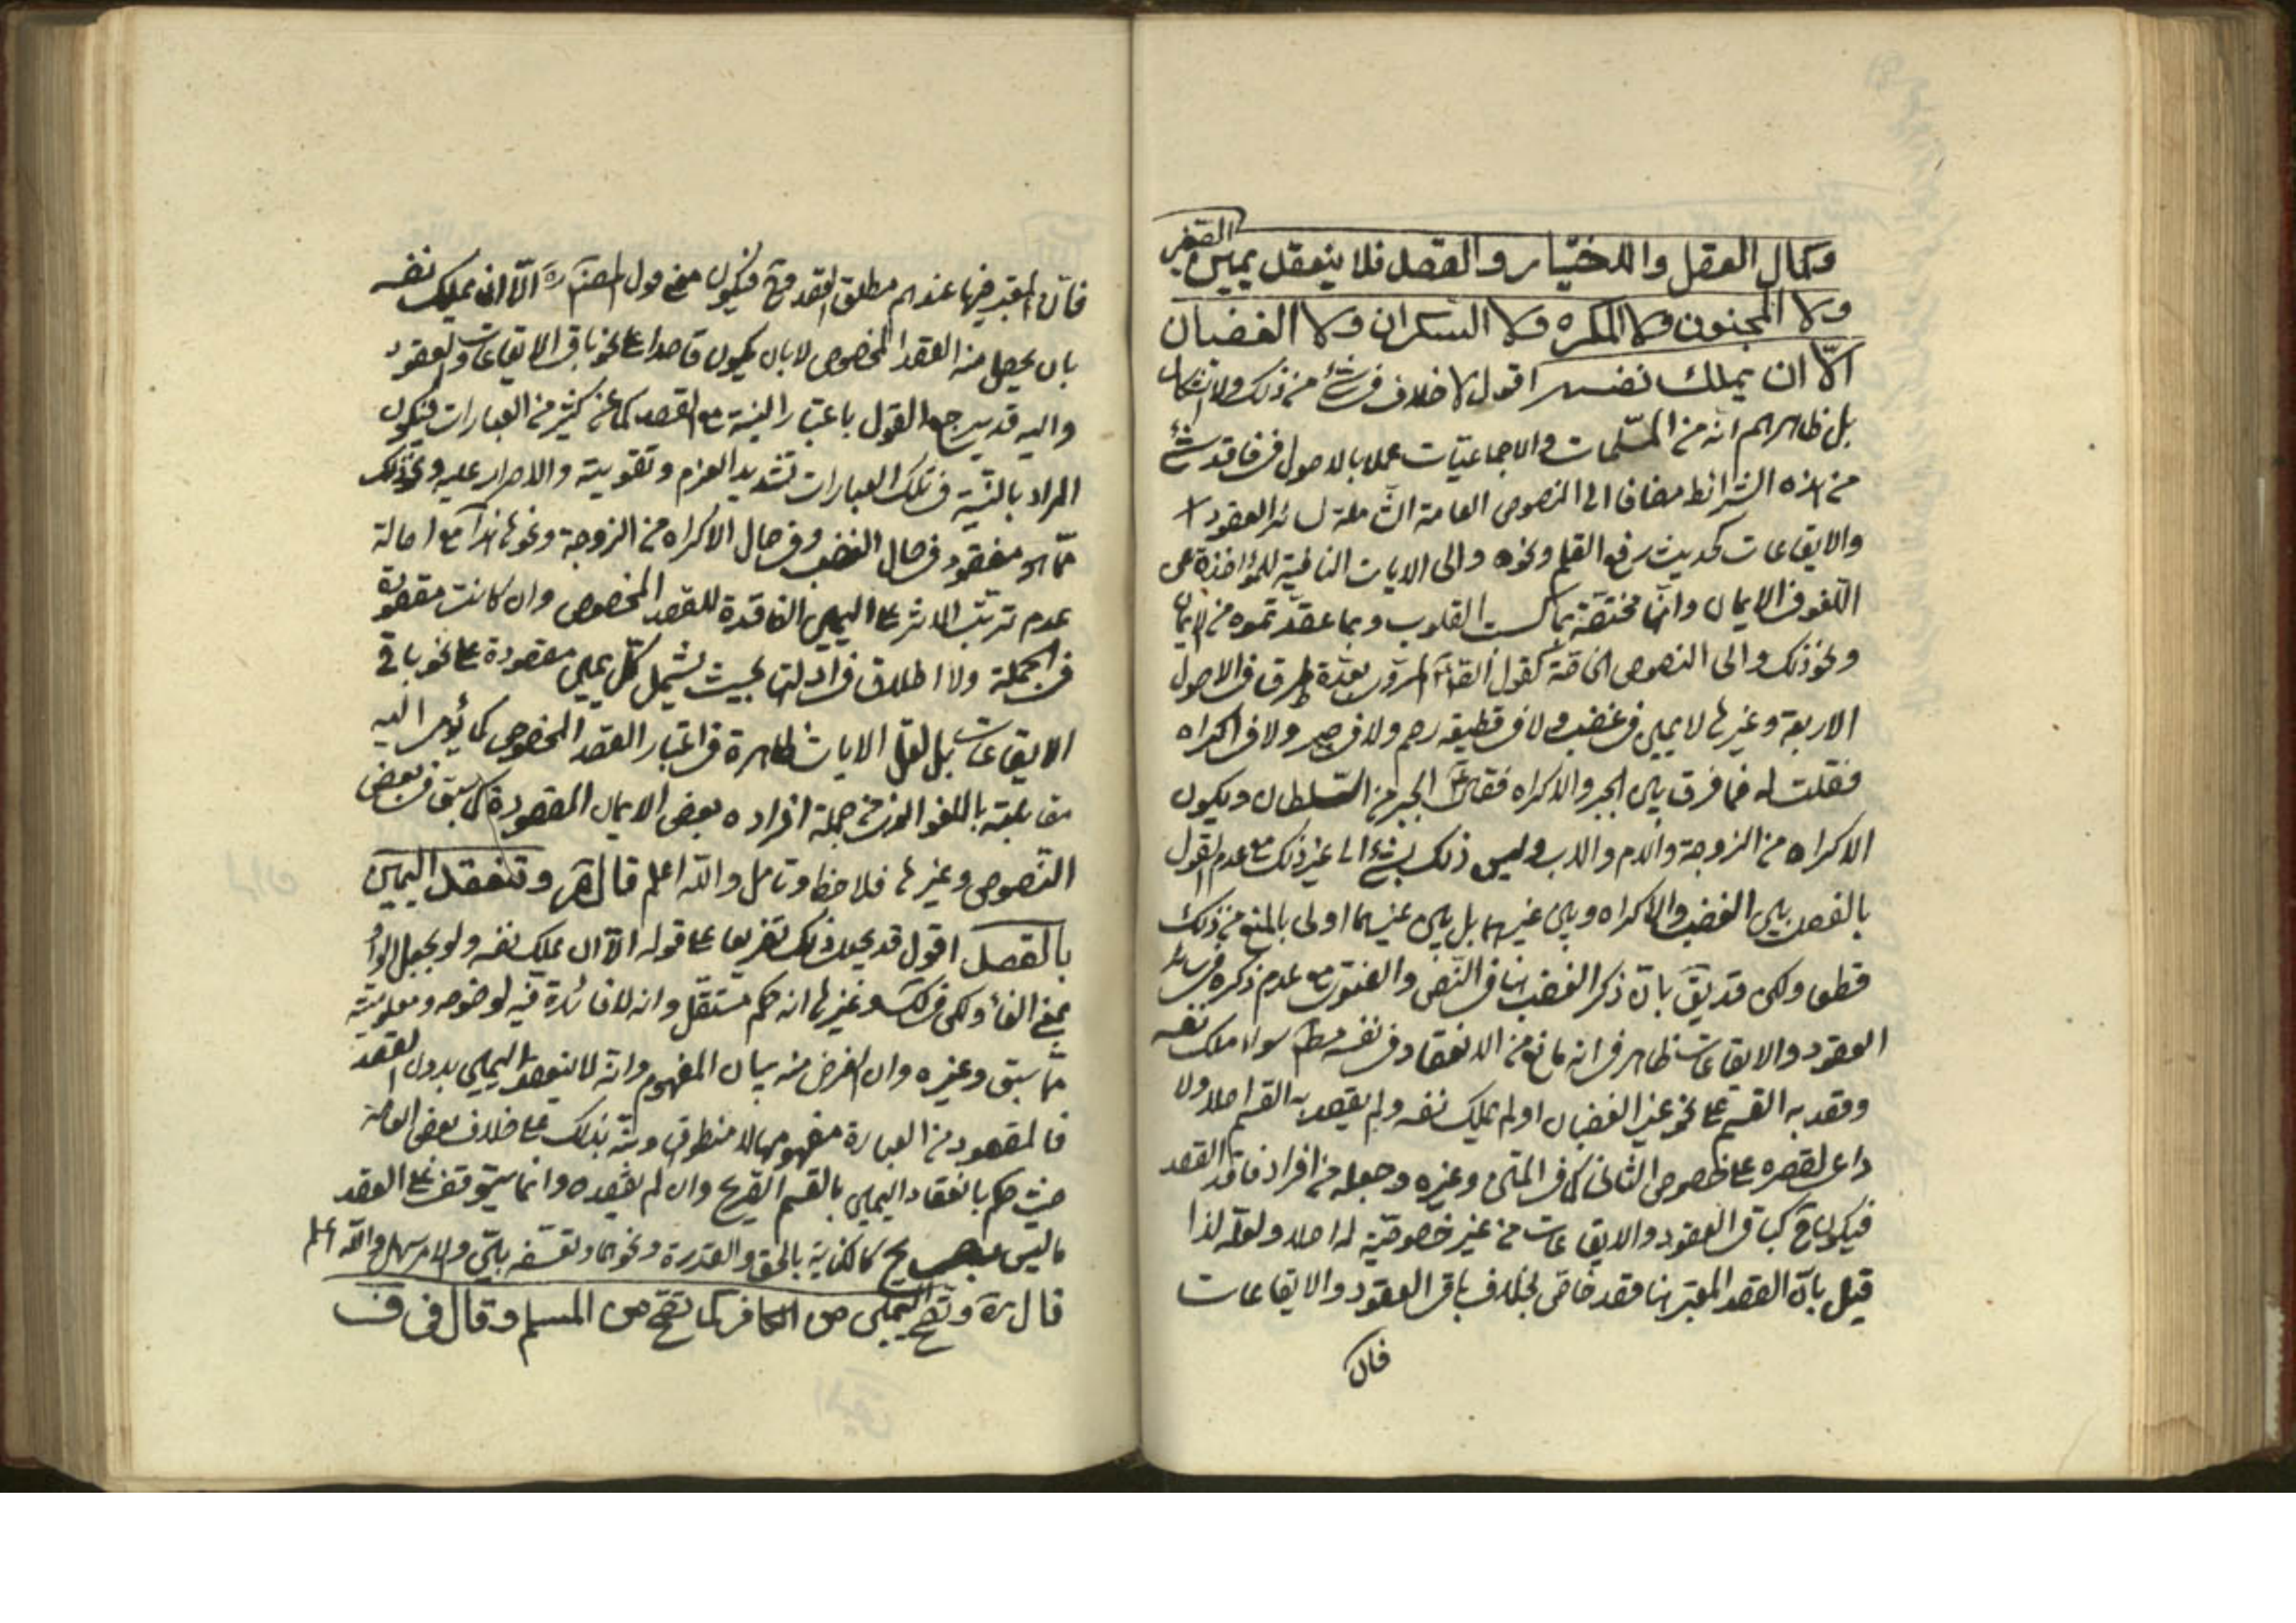 وكمال العقل والاختيار والقصد فلا ينعقد يمين الصغير
ولا المجنون ولا المكره ولا السكران ولا الغضبان
الّا ان يملك نفسه اقول لا خلاف فى شئ من ذلك ولا اشكال
بل ظاهرهم انه من المسلّمات والاجماعيّات عملا بالاصول فى فاقد شئ
من هذه الشرائط مضافا الى النصوص العامة الشاملة لسائر العقود
والايقاعات كحديث رفع القلم ونحوه والى الايات النافية للمؤاخذة عن
اللّغو فى الايمان وانّها مختصّة بما كسبت القلوب وبما عقدتموه من الايمان
ونحو ذلك والى النصوص الخاصّة كقول المروى بعدّة طرق فى الاصول
الاربعة وغيرها لا يمين فى غضب ولا فى قطيعة رحم ولا فى جبر ولا فى اكراه
فقلت له فما فرق بين الجبر والاكراه فقال الجبر من السّلطان ويكون
الاكراه من الزوجة والام والاب وليس ذلك بشئ الى غير ذلك مع عدم القول
بالفصل بين الغضب والاكراه وبين غيرهما بل بين غيرهما اولى بالمنع من ذلك
قطعا ولكن قد يق بانّ ذكر الغضب هنا فى النّص والفتوى مع عدم ذكره فى سائر
العقود والايقاعات ظاهر فى انه مانع من الانعقاد فى نفسه مط سواء ملك نفسه
وقصد به القسم على نحو غير الغضبان او لم يملك نفسه ولم يقصد به القسم اصلا ولا
داعى لقصره على خصوص الثانى كما فى المتن وغيره وجعله من افراد فاقد القصد
فيكون ح كباقى العقود والايقاعات من غير خصوصيّة له اصلا ولعلّه لذا
قيل بانّ القصد المعتبر هنا قصد خاصّ بخلاف باقى العقود والايقاعات
فان
فانّ المعتبر فيها عندهم مطلق القصد وح فيكون معنى قول المصنّف ره الّا ان يملك نفسه
بان يحصل منه القصد المخصوص لا بان يكون قاصدا على نحو باقى الايقاعات والعقود
واليه قد يرجع القول باعتبار النية مع القصد كما عن كثير من العبارات فيكون
المراد بالنيّة فى تلك العبارات تشديد العزم وتقويته والاصرار عليه ونحو ذلك
ممّا هو مفقود فى حال الغضب وفى حال الاكراه من الزوجة ونحوها هذا مع اصالة
عدم ترتّب الاثر على اليمين الفاقدة للقصد المخصوص وان كانت مقصودة
فى الجملة ولا اطلاق فى ادلتها بحيث يشمل كلّ يمين مقصودة على نحو باقى
الايقاعات بل لعلّ الايات ظاهرة فى اعتبار القصد المخصوص كما يؤمى اليه
مقابلته باللغو الذى من جملة افراده بعض الايمان المقصودة كما سبق فى بعض
النّصوص وغيرها فلاحظ وتامل والله اعلم قال ره وتنعقد اليمين
بالقصد اقول قد يجعل ذلك تفريعا على قوله الّا ان يملك نفسه ولو بجعل الواو
بمعنى الفاء ولكن فى لك وغيرها انه حكم مستقلّ وانه لا فائدة فيه لوضوحه ومعلوميّته
ممّا سبق وغيره وان الغرض منه بيان المفهوم وانه لا ينعقد اليمين بدون القصد
فالمقصود من العبارة مفهومها لا منطوقها ونبّه بذلك على خلاف بعض العامة
حيث حكم بانعقاد اليمين بالقسم الصريح وان لم يقصده وانما يتوقف على القصد
ما ليس بصريح كالكناية بالحق والقدرة ونحوهما وتعسّفه بيّن والامر سهل والله اعلم
قال ره وتصحّ اليمين من الكافر كما تصحّ من المسلم وقال فى ف